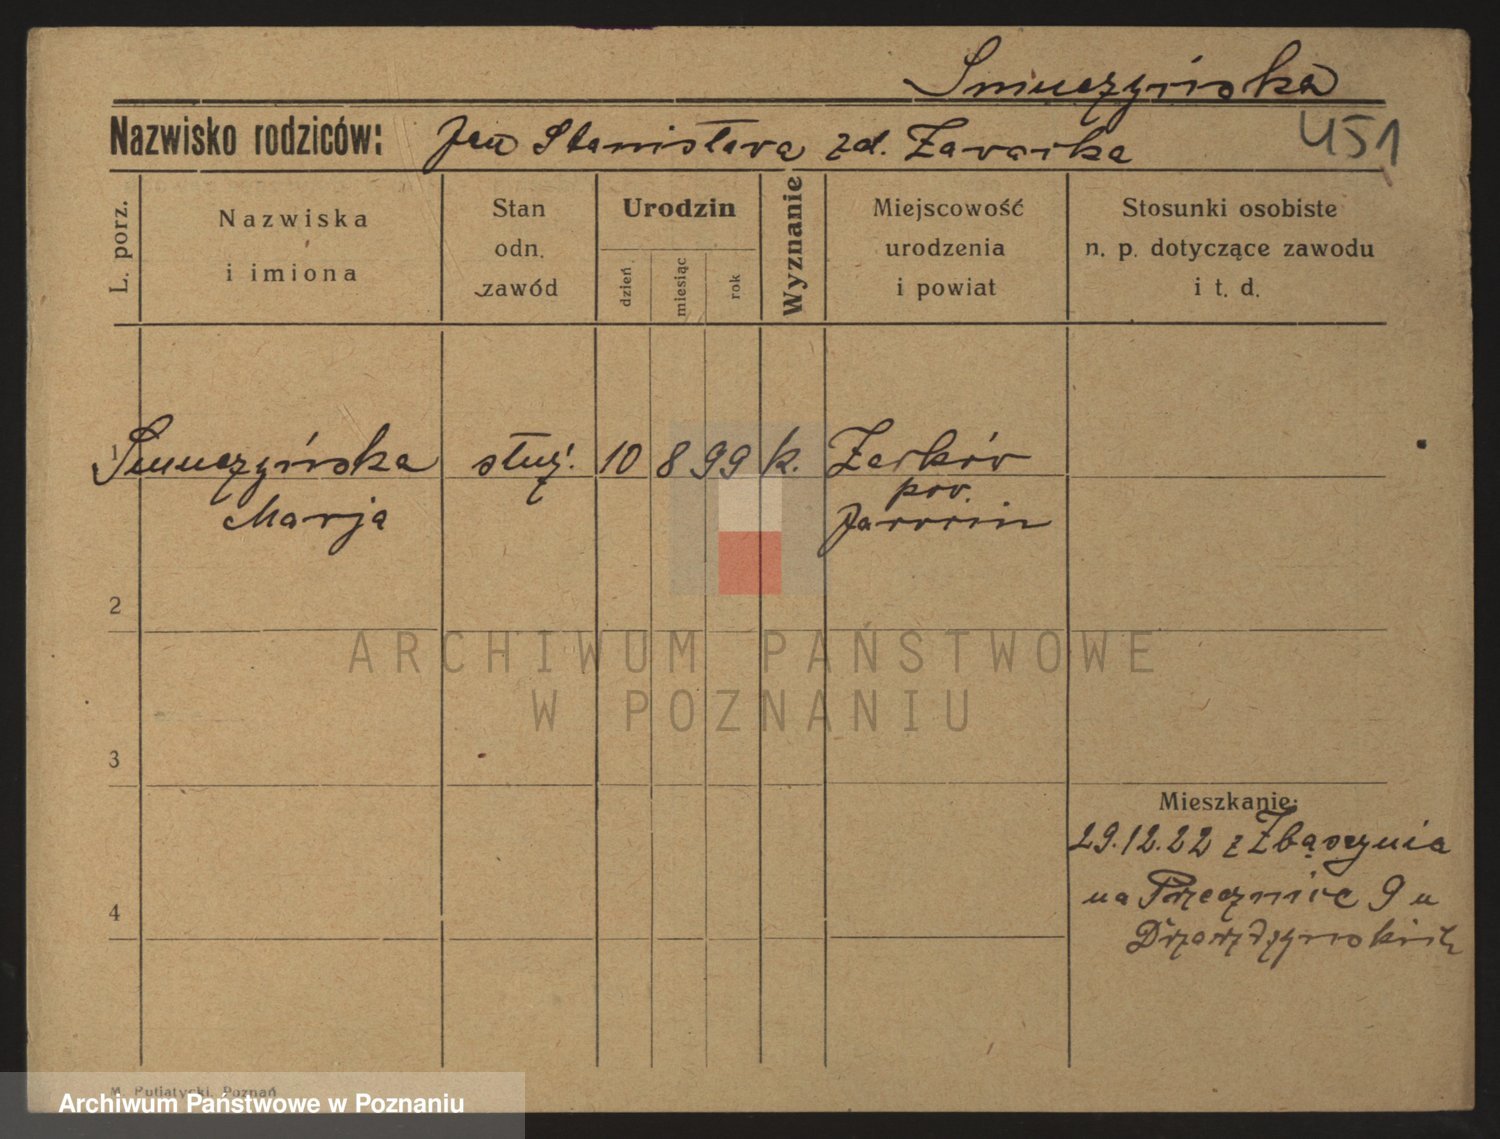 Smuczyńska
Nazwisko rodziców: Jan Stanisława zd. Zawarka
451
L. porz.
Nazwiska
i imiona
Stan
odn.
zawód
Urodzin
dzień
miesiąc
rok
Wyznanie
Miejscowość
urodzenia
i powiat
Stosunki osobiste
n. p. dotyczące zawodu
i t. d.
1 Smuczyńska służ. 10 8 99 k. Żerków
pow.
Marja Jarocin
2
3
4
Mieszkanie:
29.12.22 z Zbąszynia
na Przecznice 9 u
ARCHIWUM PAŃSTWOWE
W POZNANIU
M. Putiatycki, Poznań
Archiwum Państwowe w Poznaniu